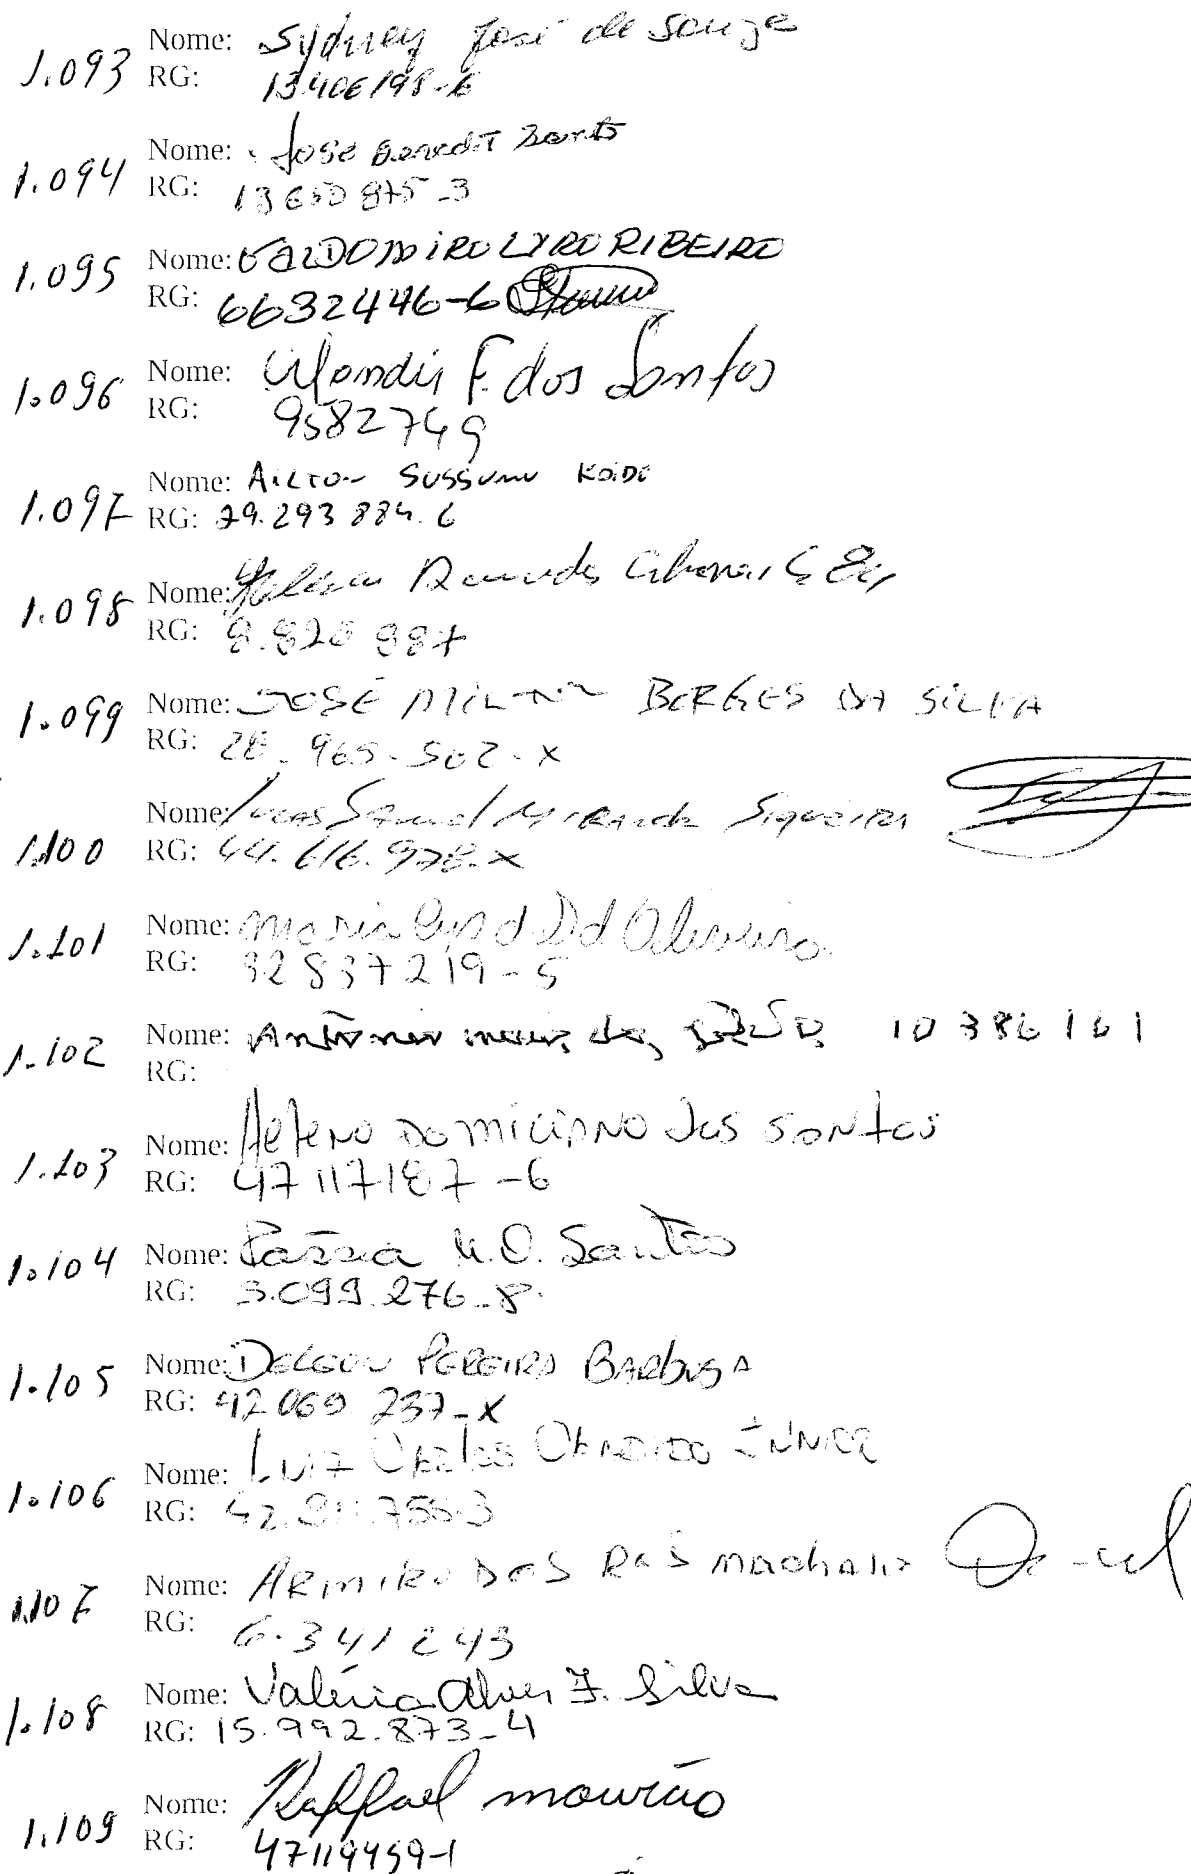 1.093 Nome: Sydney José de Souza
RG: 13.406198-6
1.094 Nome: José Benedit Santo
RG: 13650875-3
1.095 Nome: VALDOMIRO LYRO RIBEIRO
RG: 6632446-6
1.096 Nome: Wandir F. dos Santos
RG: 9582749
1.097 Nome: AILTON SUSSUMU KOIDE
RG: 29.293884.6
1.098 Nome:
RG: 8.820 887
1.099 Nome: JOSÉ MILTON BORGES DA SILVA
RG: 28.965.502-X
1.100 Nome: Lucas Samuel Miranda Siqueira
RG: 44.616.978-X
1.101 Nome: Maria d Oliveira
RG: 32837219-5
1.102 Nome: Antonio 10386161
RG:
1.103 Nome: Heleno Domiciano dos Santos
RG: 47117187-6
1.104 Nome: Santos
RG: 3.099.276-8
1.105 Nome: DELEON PEREIRA BARBOSA
RG: 42.069.237-X
1.106 Nome: LUIZ CARLOS JUNIOR
RG:
1.107 Nome: ARMIRO DOS Machado
RG: 6.341243
1.108 Nome: Valéria Alves F. Silva
RG: 15.992.873-4
1.109 Nome: Raffael mourão
RG: 47119459-1